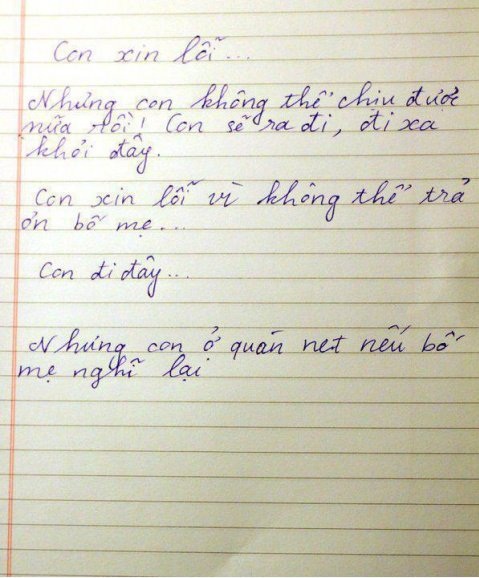 Con xin lỗi...
Nhưng con không thể chịu được
nữa rồi! Con sẽ ra đi, đi xa
khỏi đây.
Con xin lỗi vì không thể trả
ơn bố mẹ...
Con đi đây...
Nhưng con ở quán net nếu bố
mẹ nghĩ lại